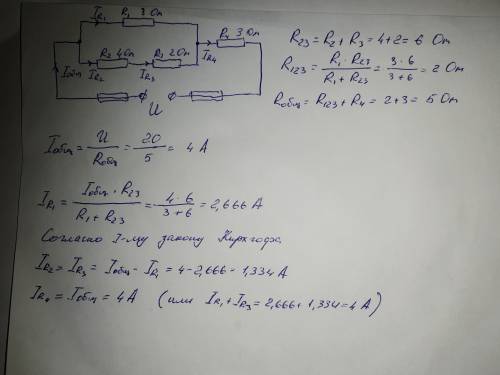 I_R1 R1 3 Ом
R2 4 Ом R3 2 Ом R4 3 Ом
Iобщ I_R2 I_R3 I_R4
U
R23 = R2 + R3 = 4+2 = 6 Ом
R123 = R1 · R23 / R1 + R23 = 3 · 6 / 3+6 = 2 Ом
Rобщ = R123 + R4 = 2+3 = 5 Ом
Iобщ = U / Rобщ = 20 / 5 = 4 А
I_R1 = Iобщ · R23 / R1 + R23 = 4 · 6 / 3+6 = 2,666 А
Согласно I-му закону Кирхгофа.
I_R2 = I_R3 = Iобщ - I_R1 = 4 - 2,666 = 1,334 А
I_R4 = Iобщ = 4А (или I_R1 + I_R3 = 2,666 + 1,334 = 4А)